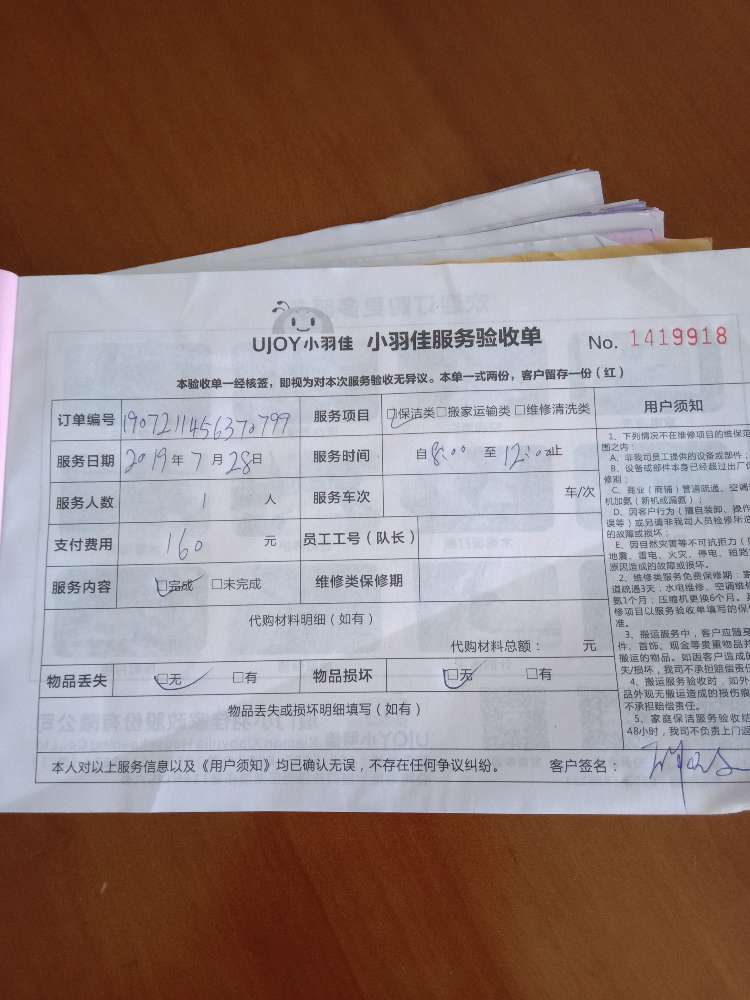 UJOY小羽佳 小羽佳服务验收单 No. 1419918
本验收单一经核签，即视为对本次服务验收无异议。本单一式两份，客户留存一份（红）
订单编号 服务项目 □保洁类□搬家运输类 □维修清洗类
服务日期 2019年7月28日 服务时间 自8:00 至12:00止
服务人数 1 人 服务车次 车/次
支付费用 160 元 员工工号（队长）
服务内容 □完成 □未完成 维修类保修期
代购材料明细（如有）
代购材料总额： 元
物品丢失 □无 □有 物品损坏 □无 □有
物品丢失或损坏明细填写（如有）
本人对以上服务信息以及《用户须知》均已确认无误，不存在任何争议纠纷。 客户签名：
用户须知
1、下列情况不在维修项目的维保范
围之内：
A、非我司员工提供的设备或部件；
B、设备或部件本身已经超过出厂保
修期；
C、商业（商铺）管道疏通、空调
机加氨（新机或漏氨）；
D、因客户行为（擅自装卸、操作
误等）或另请非我司人员检修所造
的故障或损坏；
E、因自然灾害等不可抗拒力（
地震、雷电、火灾、停电、短路
原因造成的故障或损坏。
2、维修类服务免费保修期：
道疏通3天，水电维修、空调维修
氨1个月；压缩机更换6个月。
修项目以服务验收单填写的保
准。
3、搬运服务中，客户应随身
件、首饰、现金等贵重物品
搬运的物品。如因客户造成的
失/损坏，我司不承担赔偿责任
4、搬运服务验收时，如外
品外观无搬运造成的损伤痕
不承担赔偿责任。
5、家庭保洁服务验收结
48小时，我司不负责上门返